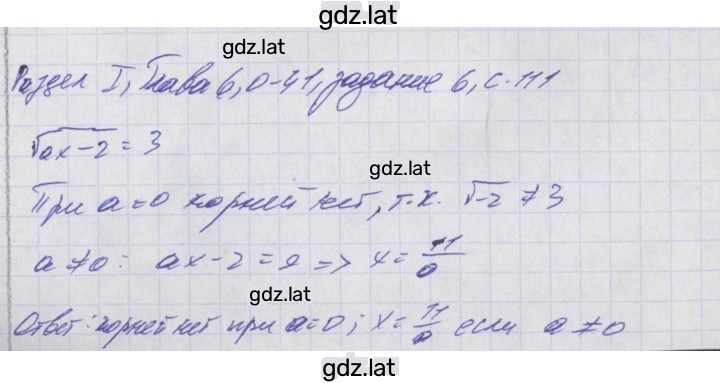 gdz.lat
gdz.lat
Раздел I, Глава 6, О-41, задание 6, с. 111
√ax-2 = 3
gdz.lat
При a=0 корней нет, т.к. √-2 ≠ 3
gdz.lat
a≠0: ax-2=9 => x = 11/a
gdz.lat
Ответ: корней нет при a=0; x = 11/a если a≠0
gdz.lat